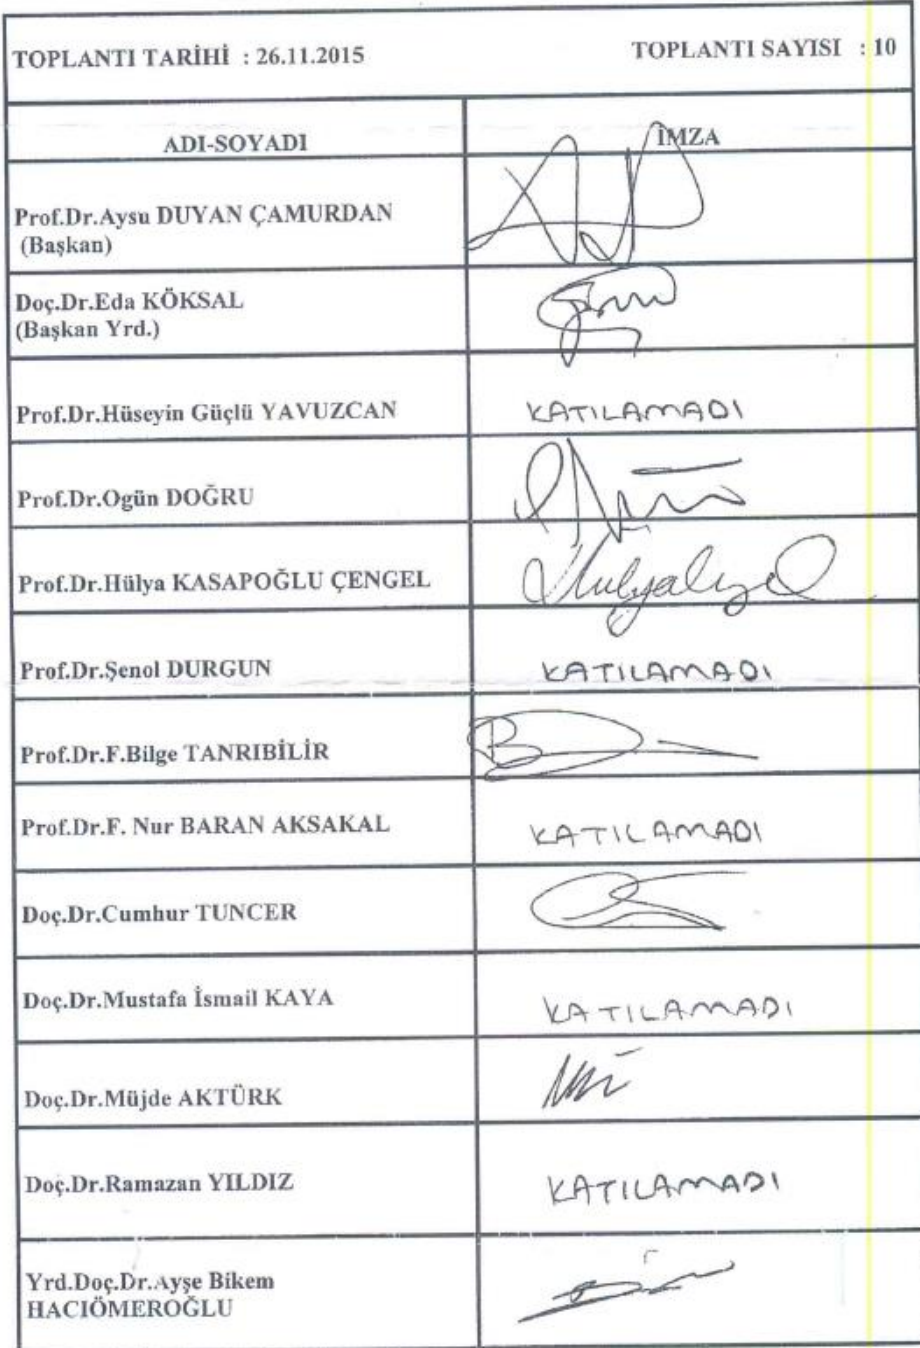 TOPLANTI TARİHİ : 26.11.2015 TOPLANTI SAYISI : 10
ADI-SOYADI İMZA
Prof.Dr.Aysu DUYAN ÇAMURDAN
(Başkan)
Doç.Dr.Eda KÖKSAL
(Başkan Yrd.)
Prof.Dr.Hüseyin Güçlü YAVUZCAN KATILAMADI
Prof.Dr.Ogün DOĞRU
Prof.Dr.Hülya KASAPOĞLU ÇENGEL
Prof.Dr.Şenol DURGUN KATILAMADI
Prof.Dr.F.Bilge TANRIBİLİR
Prof.Dr.F. Nur BARAN AKSAKAL KATILAMADI
Doç.Dr.Cumhur TUNCER
Doç.Dr.Mustafa İsmail KAYA KATILAMADI
Doç.Dr.Müjde AKTÜRK
Doç.Dr.Ramazan YILDIZ KATILAMADI
Yrd.Doç.Dr.Ayşe Bikem
HACIÖMEROĞLU